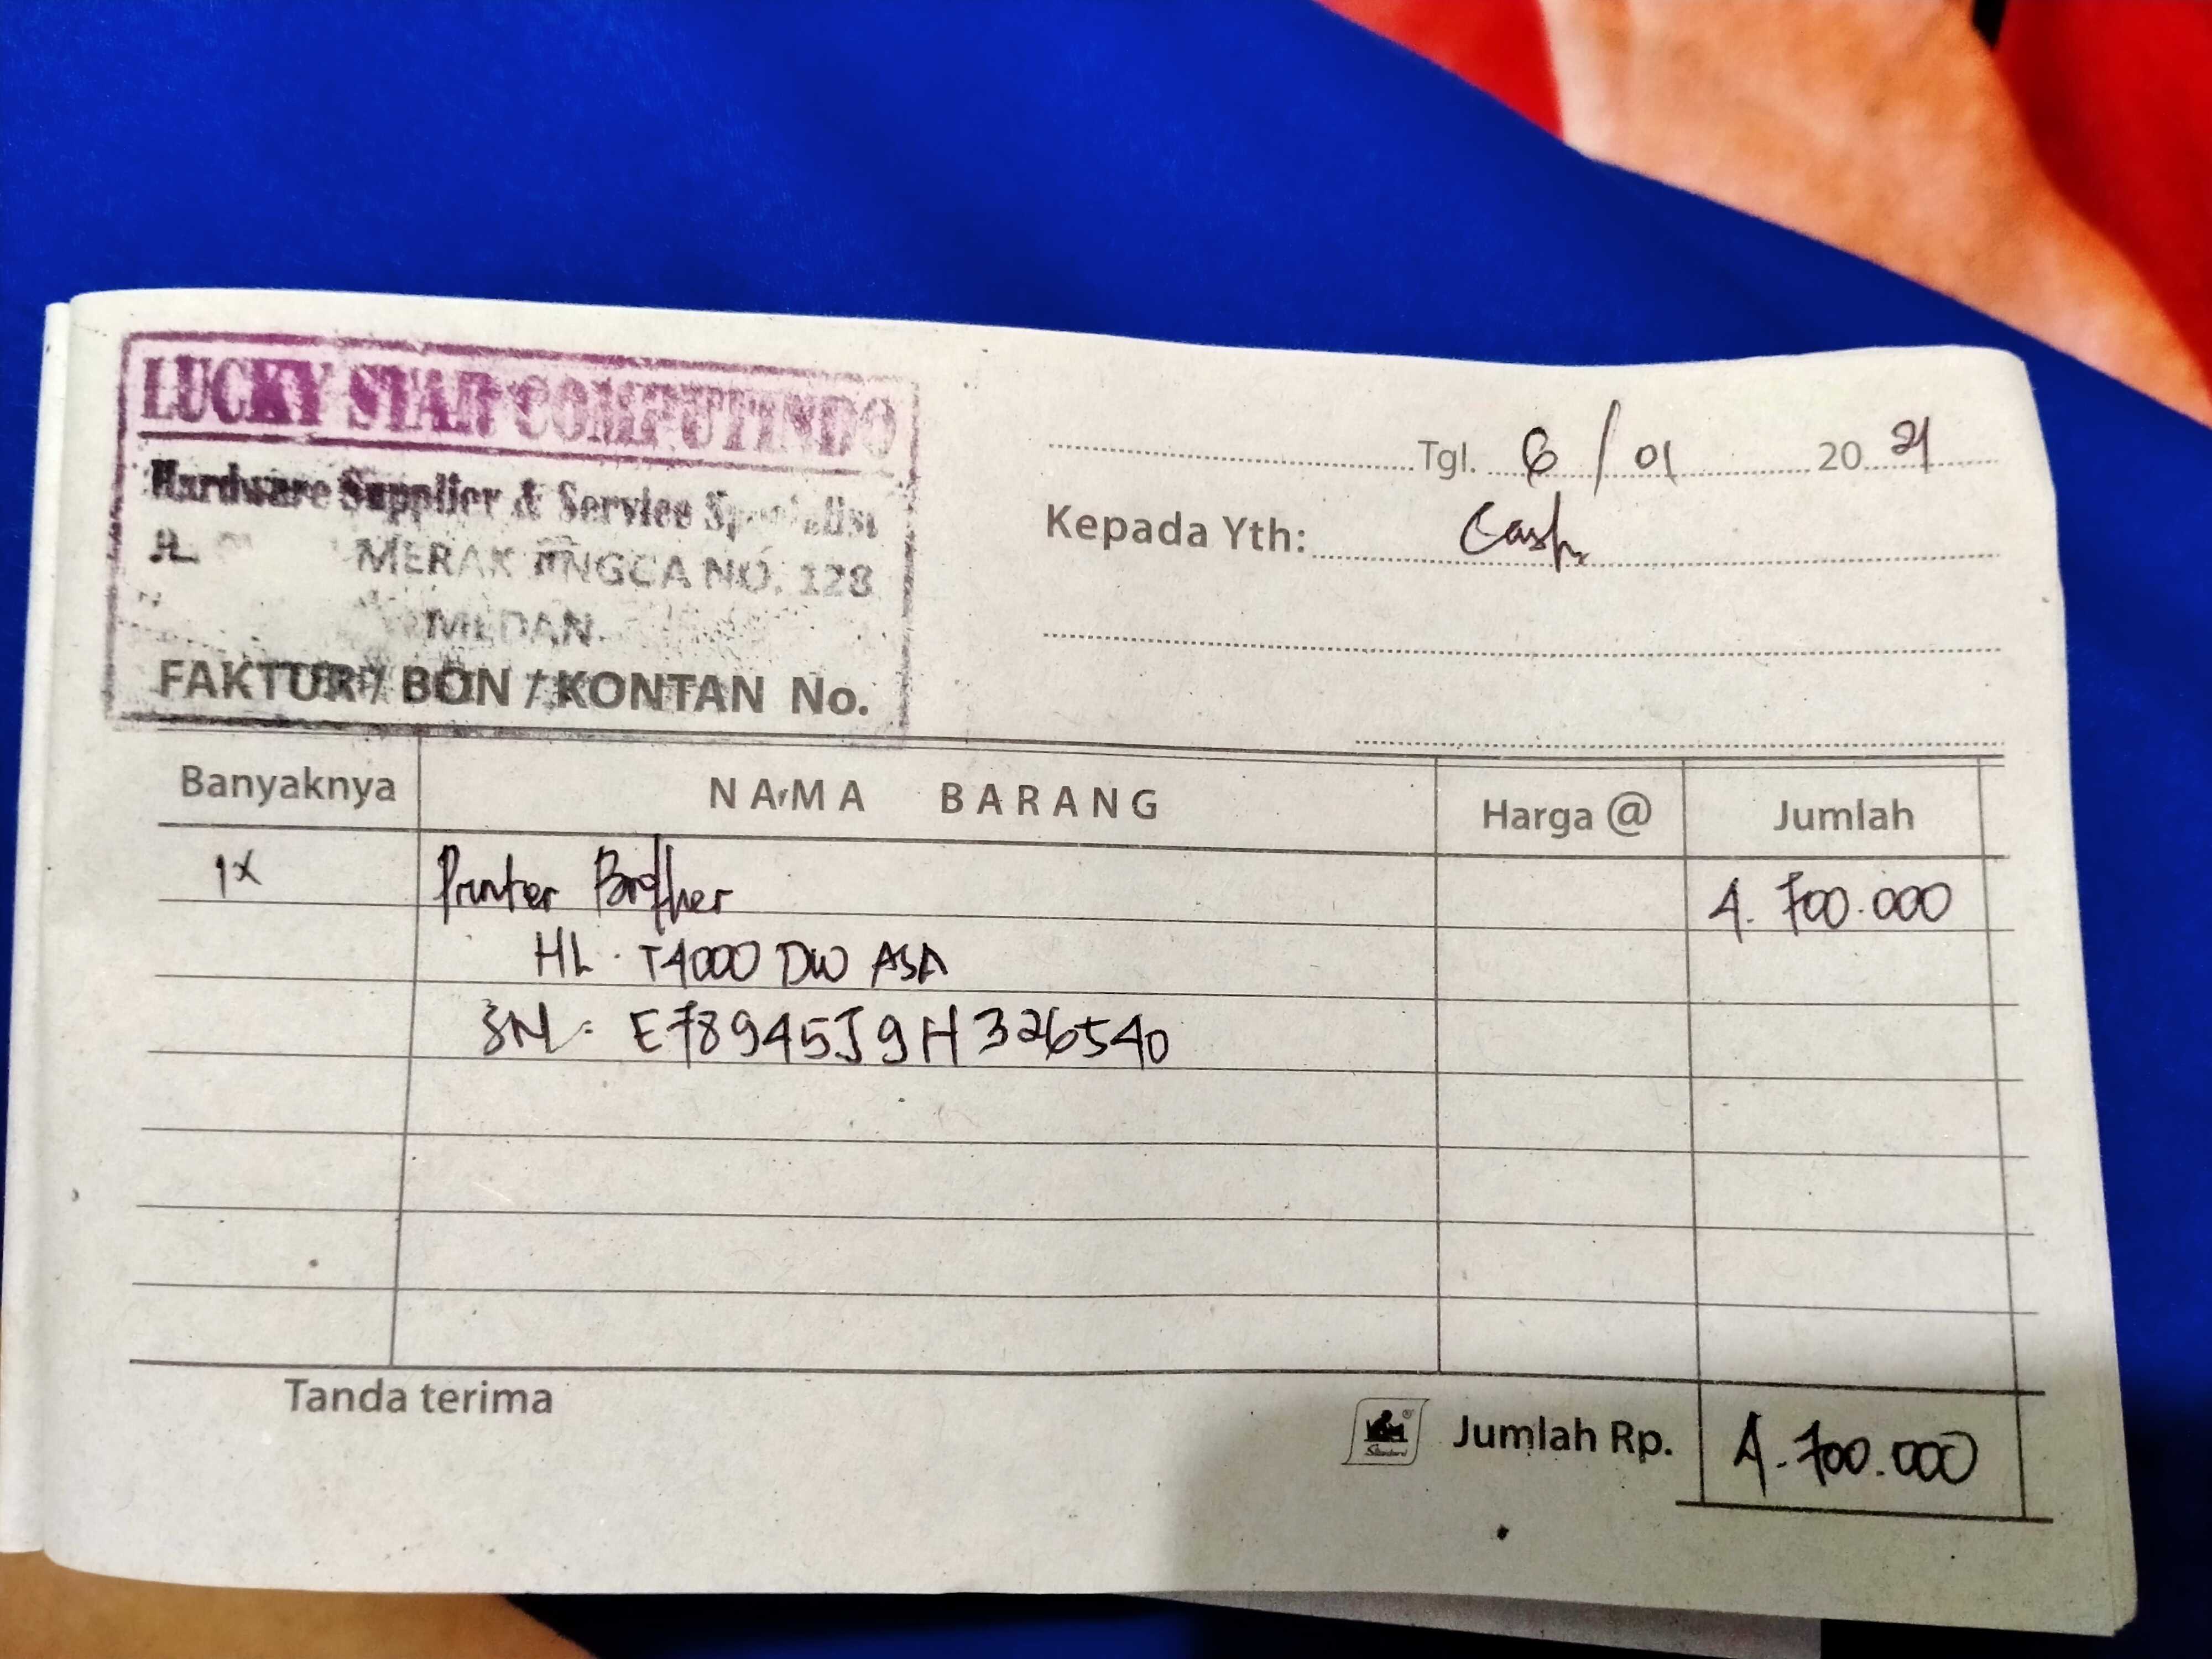 LUCKY STAR COMPUTINDO
Hardware Supplier & Service Specialist
JL. MERAK JINGGA NO. 128
MEDAN
FAKTUR / BON / KONTAN No.
Tgl. 6 / 01 20 21
Kepada Yth: Cash
Banyaknya NAMA BARANG Harga @ Jumlah
1x Printer Brother 4.700.000
HL. T4000 DW ASA
SN: E78945J9H326540
Tanda terima
Standard
Jumlah Rp. 4.700.000